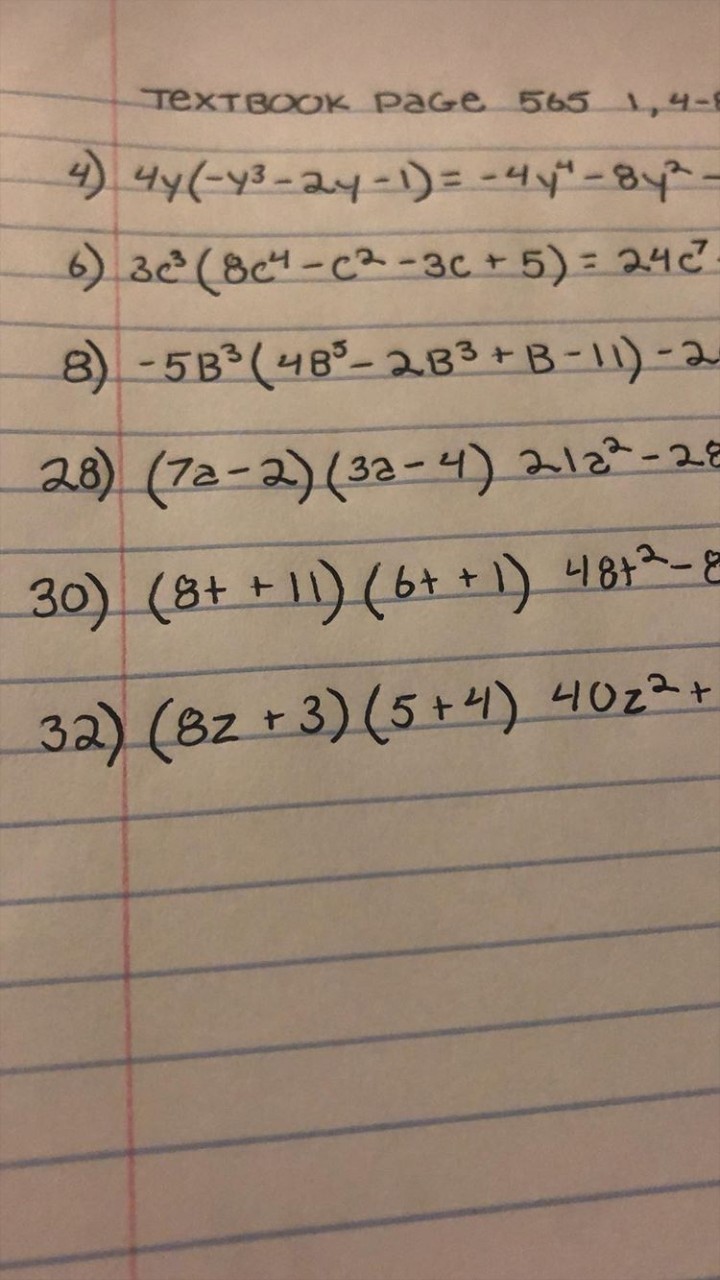 TEXTBOOK PAGE 565 1, 4-8
4) 4y(-y³-2y-1) = -4y⁴-8y²-
6) 3c³(8c⁴-c²-3c+5) = 24c⁷-
8) -5B³(4B⁵-2B³+B-11) -2
28) (7a-2)(3a-4) 21a²-28
30) (8t+11)(6t+1) 48t²-8
32) (8z+3)(5+4) 40z²+